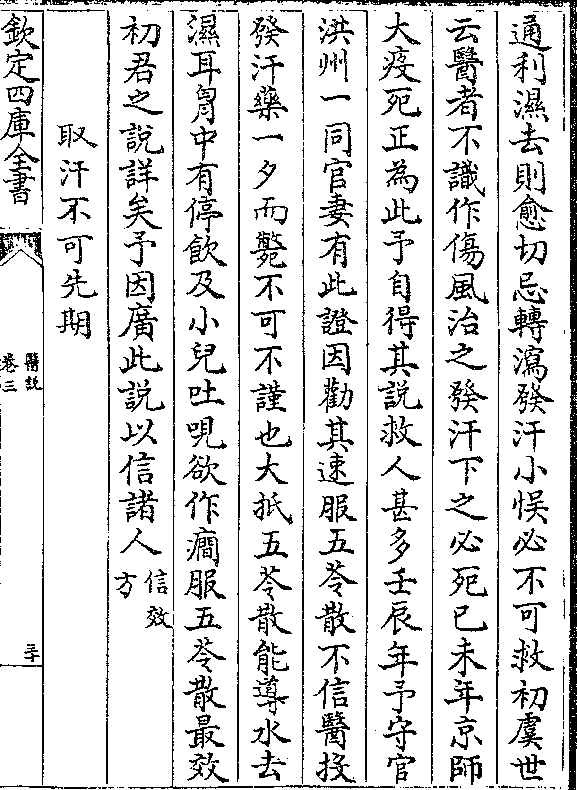 通利濕去則愈切忌轉瀉發汗小悮必不可救初虞世
云醫者不識作傷風治之發汗下之必死已未年京師
大疫死正為此予自得其說救人甚多壬辰年予守官
洪州一同官妻有此證因勸其速服五苓散不信醫投
發汗藥一夕而斃不可不謹也大抵五苓散能導水去
濕耳胷中有停飲及小兒吐哯欲作癎服五苓散最效
初君之說詳矣予因廣此說以信諸人信效方
取汗不可先期
欽定四庫全書
醫說
卷三
三十